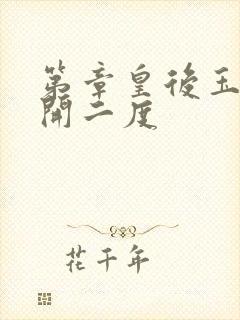 第章皇後玉
開二度
花千年